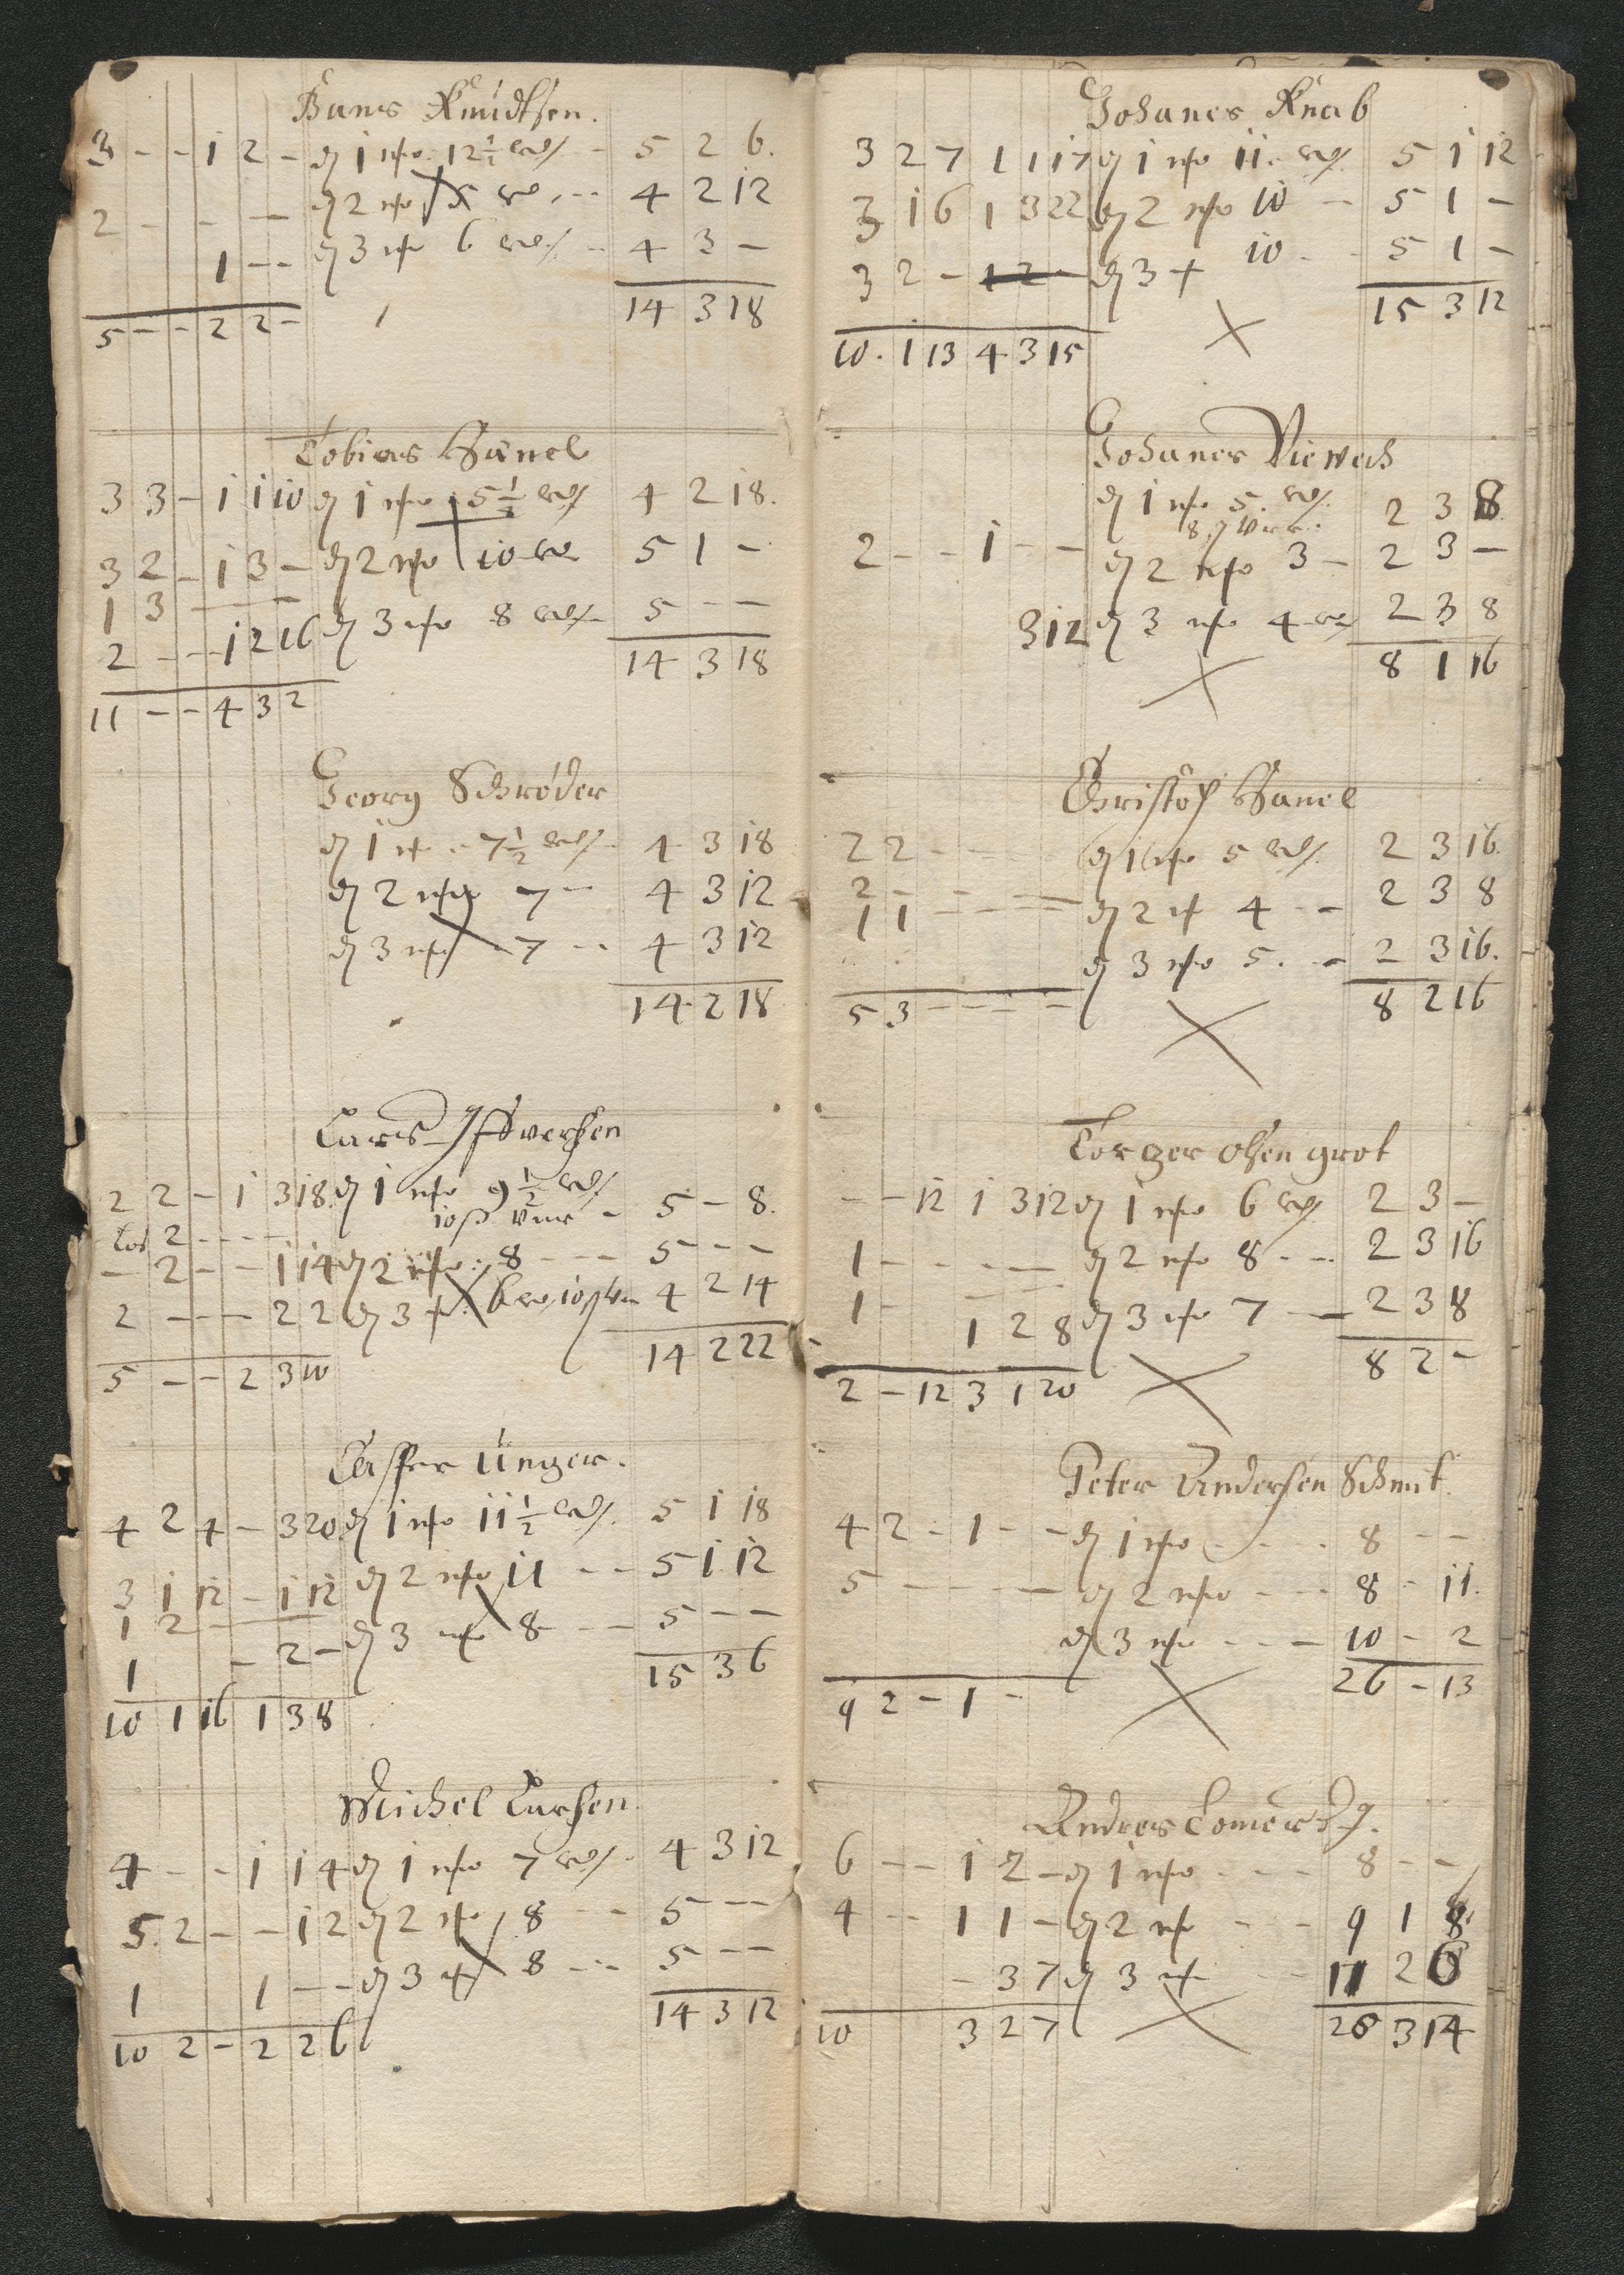 Hans Knudtsen.
3 - - 1 2 - dj 1 mo 12½ - 5 2 6.
2 - - - dj 2 mo - 4 2 12
1 - - dj 3 mo 6 - 4 3 -
5 - - 2 2 - 14 3 18
Tobias Hanel
3 3 - 1 1 10 dj 1 mo 5½ 4 2 18.
3 2 - 1 3 - dj 2 mo 10 5 1 -
1 3 - - -
2 - - 1 2 16 dj 3 mo 8 5 - -
11 - - 4 3 2 14 3 18
Georg Schröder
dj 1 m - 7½ 4 3 18
dj 2 mo 7 - 4 3 12
dj 3 mo - 7 - 4 3 12
14 2 18
Lars Iffversen
2 2 - 1 3 18. dj 1 mo 9½
10 ß - 5 - 8.
2 - - -
- 2 - - 1 14 dj 2 mo 8 - - 5 - - -
2 - - - 2 2 dj 3 m 6 10 ß 4 2 14
5 - - 2 3 10 14 2 22
Casper Unger.
4 2 4 - 3 20 dj 1 mo 11½ 5 1 18
3 1 12 - 1 12 dj 2 mo 11 - - 5 1 12
1 2 - - -
1 - 2 - dj 3 mo 8 - - 5 - -
10 1 16 1 3 8 15 3 6
Michel Larsen
4 - - 1 1 4 dj 1 mo 7 4 3 12
5. 2 - - 1 2 dj 2 m 8 - - 5 - -
1 1 - - dj 3 m 8 - - 5 - -
10 2 - 2 2 6 14 3 12
Johanes Knab
3 2 7 1 1 17 dj 1 mo 11. 5 1 12
3 1 6 1 3 22 dj 2 mo 10 - 5 1 -
3 2 - 1 2 - dj 3 m 10 - 5 1 -
10. 1 13 4 3 15 15 3 12
Johanes Viewech
dj 1 mo 5. 2 3 8
8 ß
2 - - 1 - - dj 2 mo 3 - 2 3 -
3 12 dj 3 mo 4 2 3 8
8 1 16
Christof Hanel
2 2 - - dj 1 mo 5 2 3 16.
2 - - - -
1 1 - - - - dj 2 m 4 - - 2 3 8
dj 3 mo 5. - 2 3 16.
5 3 - - - - 8 2 16
Torger Olsen grot
- - 12 1 3 12 dj 1 mo 6 2 3 -
1 - - - - dj 2 mo 8 - - 2 3 16
1 - 1 2 8 dj 3 mo 7 - 2 3 8
2 - 12 3 1 20 8 2 -
Peter Andersen Schmit
4 2 - 1 - - dj 1 mo - - - 8 - -
5 - - - - dj 2 mo - - - 8 - 11.
dj 3 mo - - - 10 - 2
9 2 - 1 - 26 - 13
Andres
6 - - 1 2 - dj 1 mo - - - 8 - -
4 - - 1 1 - dj 2 m - - - 9 1 8
- 3 7 dj 3 m - - 11 2 6
10 3 2 7 28 3 14